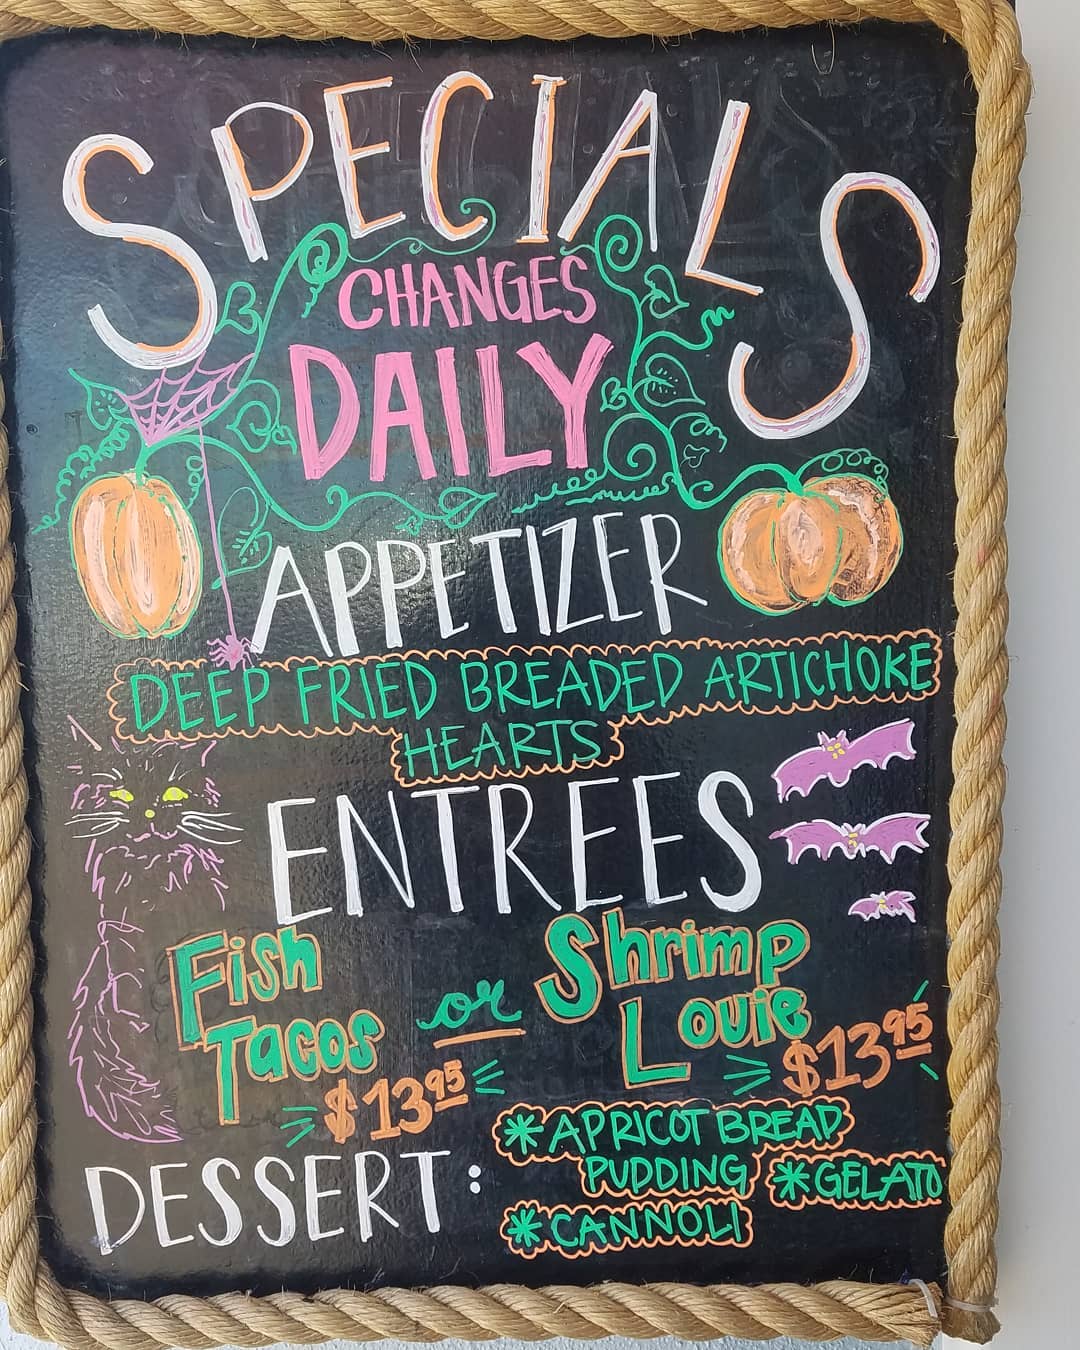 SPECIALS
CHANGES
DAILY
APPETIZER
DEEP FRIED BREADED ARTICHOKE
HEARTS
ENTREES
Fish
Tacos
$13.95
or
Shrimp
Louie
$13.95
DESSERT:
*APRICOT BREAD
PUDDING
*GELATO
*CANNOLI